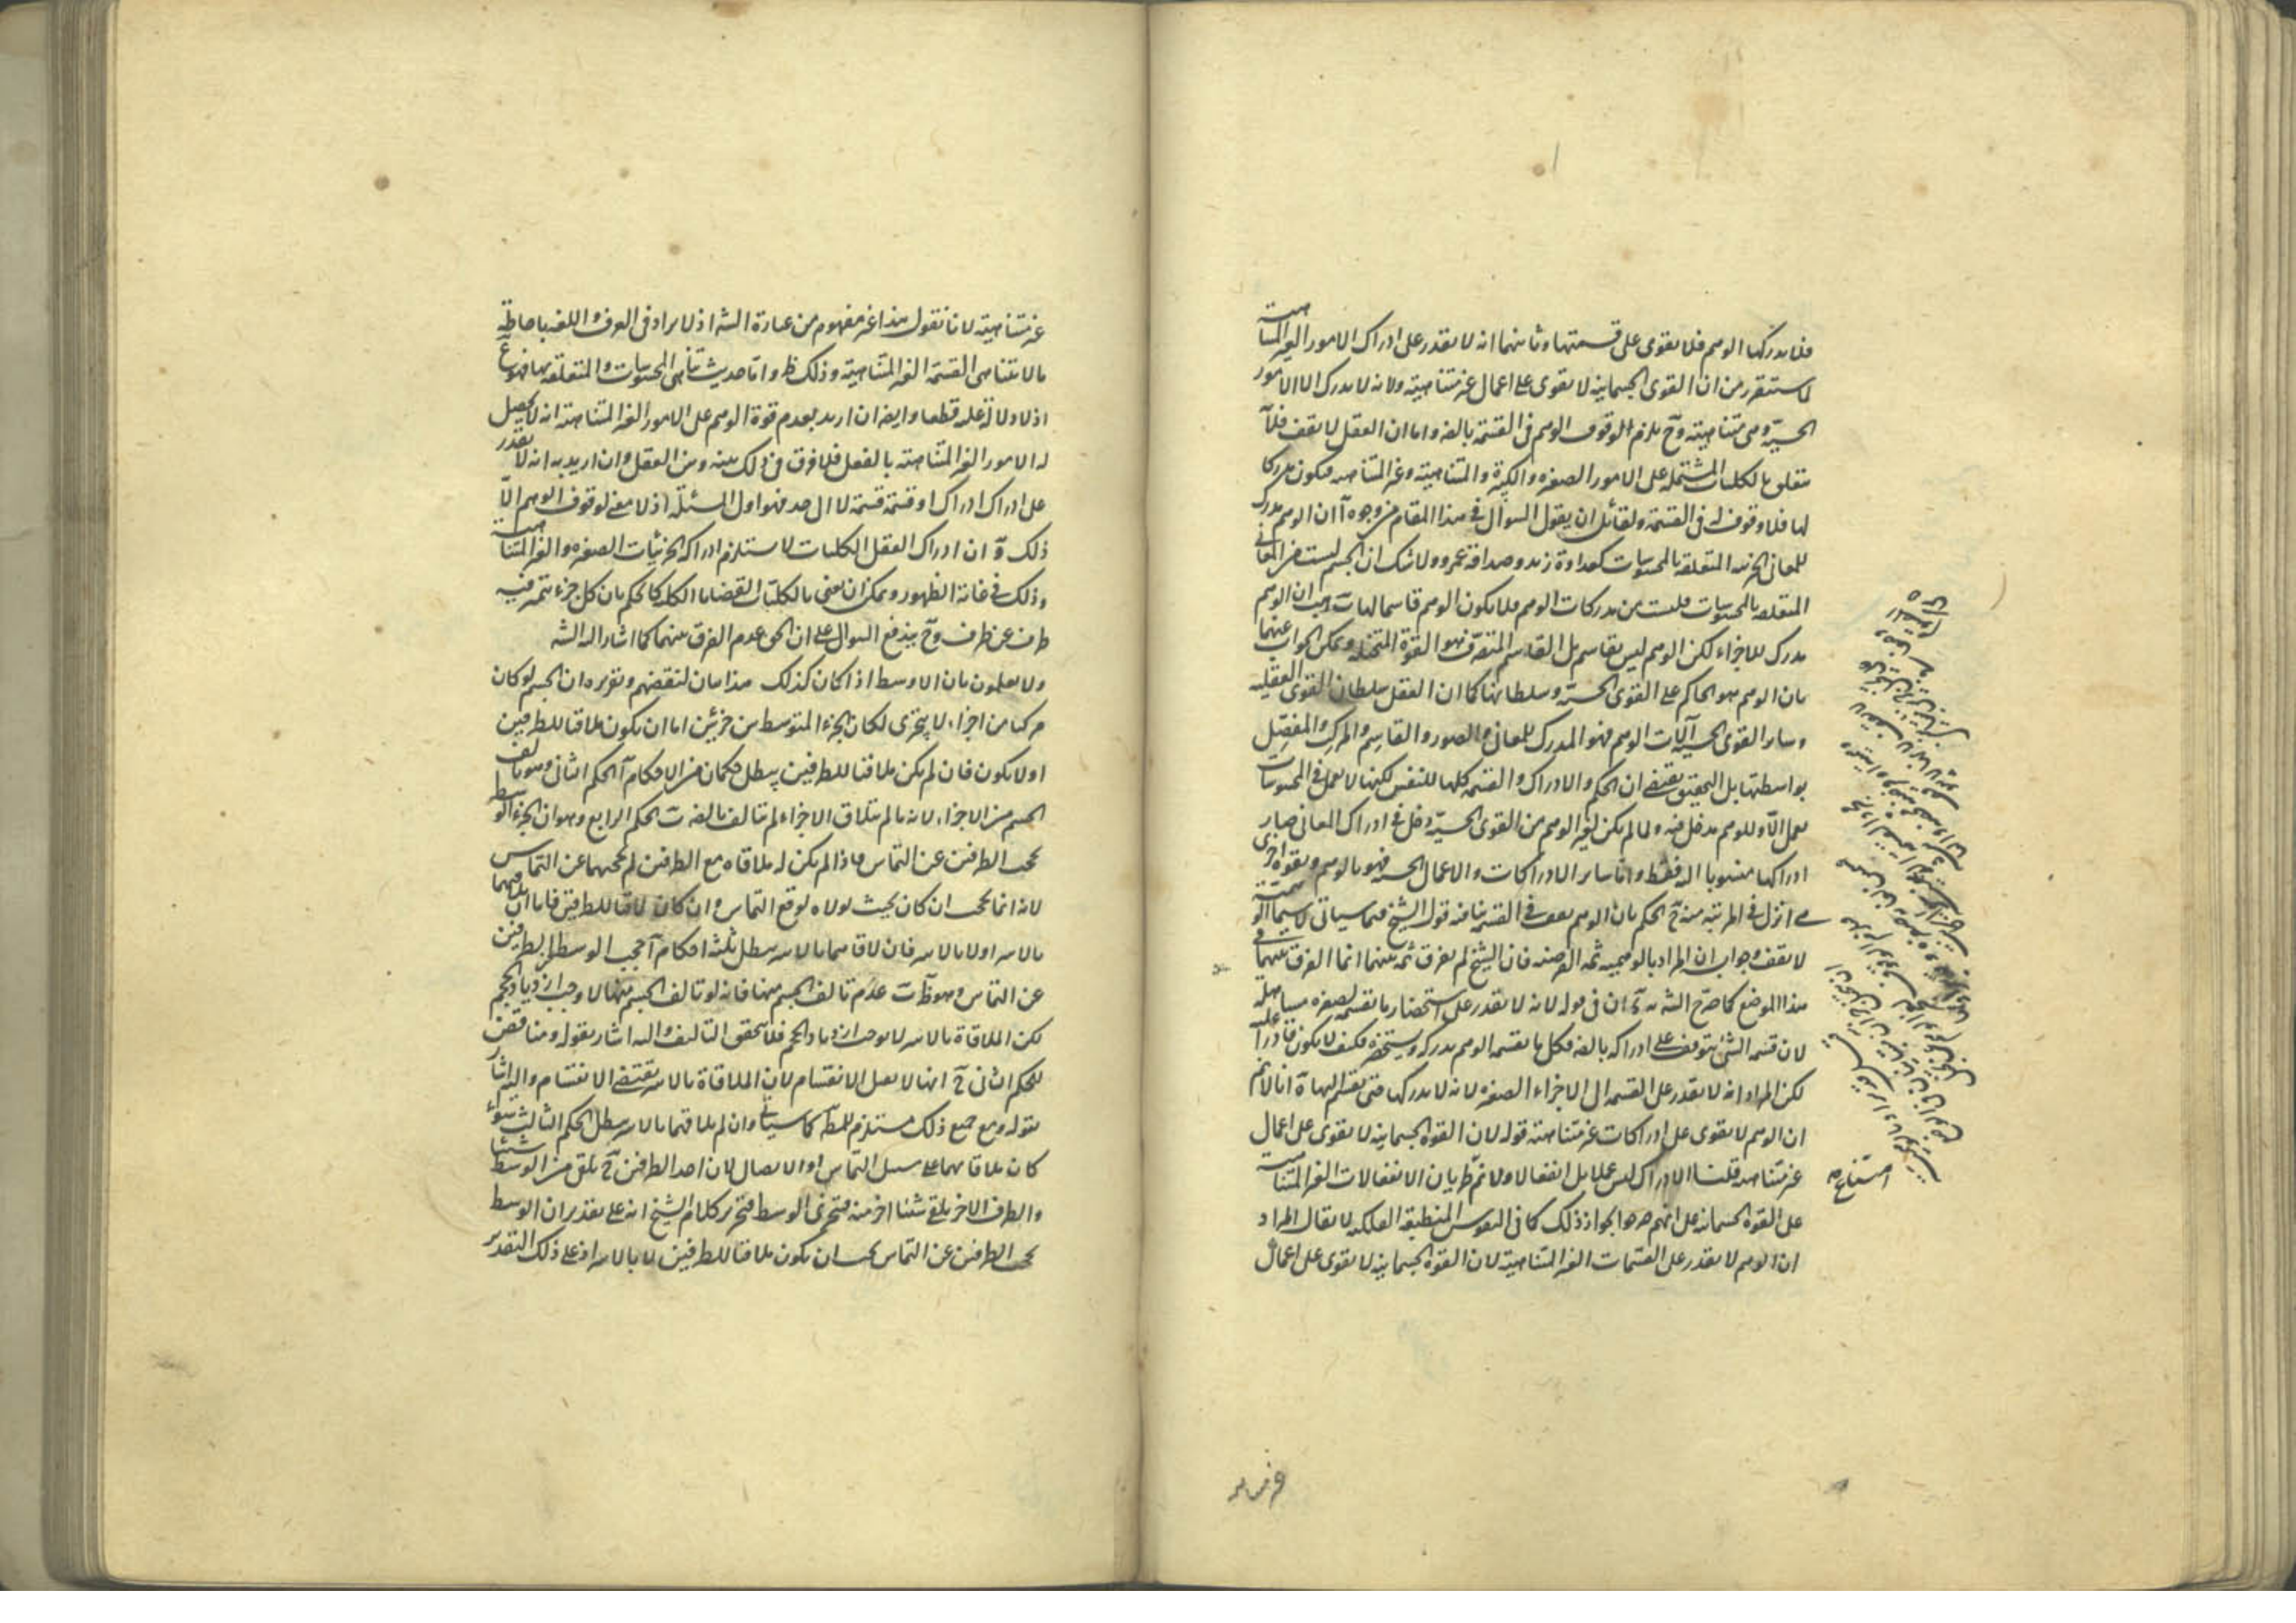 فلا يدركها الوهم فلا يقوى على قسمتها وثانيهما انه لا يقدر على ادراك الامور الغير المتناهية
لما ستقرر من ان القوى الجسمانية لا يقوى على اعمال غير متناهية ولانه لا يدرك الا الامور
الحسية وهى متناهية وح يلزم الوقوف الوهم فى القسمة بالضه واما ان العقل لا يقف فلان
تعقله بالكليات المشتملة على الامور الصغيره والكبيرة والمتناهية وغير المتناهيه فيكون مدركا
لها فلا وقوف له فى القسمة ولقائل ان يقول السوال فى هذا المقام من وجوه آ ان الوهم مدرك
للمعانى الجزئيه المتعلقه بالمحسوسات كعداوة زيد وصداقة عمرو ولا شك ان الجسم ليست من المعانى
المتعلقه بالمحسوسات فليست من مدركات الوهم فلا يكون الوهم قاسما لها ب هب ان الوهم
مدرك للاجزاء لكن الوهم ليس بقاسم بل القاسم المتصرف فهو القوة المتخيله ويمكن الجواب عنهما
بان الوهم هو الحاكم على القوى الحسيه وسلطانها كما ان العقل سلطان القوى العقليه
وساير القوى الحسية آلات الوهم فهو المدرك للمعانى والصور والقاسم والمركب والمفصل
بواسطتها بل التحقيق يقتضى ان الحكم والادراك والقسمه كلها للنفس لكنها لا تعمل فى المحسوسات
عمل الا وللوهم مدخل فيه ولما لم يكن لغير الوهم من القوى الحسية دخل فى ادراك المعانى صار
ادراكها منسوبا اليه فقط واما ساير الادراكات والاعمال الحسيه فهو بالوهم وبقواه اخرى
هى انزل فى المرتبه منه ح الحكم بان الوهم يقف فى القسمه ينافيه قول الشيخ فيما سياتى لاسيما الوهمية
لا يقف وجوابه ان المراد بالوهميه ثمه الفرضيه فان الشيخ لم يفرق ثمه بينهما انما الفرق بينهما فى
هذا الموضع كما صرح الشه به د ان فى قوله لانه لا يقدر على استحضار ما يقسمه لصغره مساهلة
لان قسمه الشئ يتوقف على ادراكه بالضه فكل ما يقسمه الوهم يدركه ويستحضره فكيف لا يكون قادرا عليه
لكن المراد انه لا يقدر على القسمه الى الاجزاء الصغيره لانه لا يدركها حتى يقسم اليها ة انا لا نم
ان الوهم لا يقوى على ادراكات غير متناهيه قوله لان القوة الجسمانية لا يقوى على اعمال
غير متناهيه قلنا الادراك ليس عملا بل انفعالا ولا نم طريان الانفعالات الغير المتناهية
على القوة الجسمانيه على انهم صرحوا بجواز ذلك كما فى النفوس المنطبقه الفلكيه لا يقال المراد
ان الوهم لا يقدر على القسمات الغير المتناهية لان القوة الجسمانية لا يقوى على اعمال
امتناع
غير متناهية لانا نقول هذا غير مفهوم من عبارة الشه اذ لا يراد فى العرف واللغه باحاطة
ما لا يتناهى القسمة الغير المتناهية وذلك ظ واما حديث تناهى المحسوسات والمتعلقه بها فممنوع
اذ لا دلالة عليه قطعا وايضا ان اريد بعدم قوة الوهم على الامور الغير المتناهية انه لا يحصل
له الامور الغير المتناهيه بالفعل فلا فرق فى ذلك بينه وبين العقل وان اريد به انه لا يقدر
على ادراك ادراك او قسمة قسمة لا الى حد فهو اول المسئلة اذ لا معنى لوقوف الوهم الا
ذلك و ان ادراك العقل الكليات لا يستلزم ادراكه الجزئيات الصغيره والغير المتناهية
وذلك فى غاية الظهور ويمكن ان يعنى بالكليات القضايا الكليه كالحكم بان كل جزء يتميز فيه
طرف عن طرف وح يندفع السوال على ان الحق عدم الفرق بينهما كما اشار اليه الشه
ولا يعلمون بان الاوسط اذا كان كذلك هذا بيان لنقضهم وتقريره ان الجسم لو كان
مركبا من اجزاء لا يتجزى لكان الجزء المتوسط بين جزئين اما ان يكون ملاقيا للطرفين
او لا يكون فان لم يكن ملاقيا للطرفين يبطل حكمان من الاحكام آ الحكم الثانى وهو تالف
الجسم من الاجزاء لانه ما لم يتلاق الاجزاء لم يتالف بالضه ب الحكم الرابع وهو ان الجزء الوسط
يحجب الطرفين عن التماس فاذا لم يكن له ملاقاه مع الطرفين لم يحجبهما عن التماس
لانه انما يحجب ان كان بحيث لولاه لوقع التماس وان كان لاقيا للطرفين فاما ان يلاقيهما
بالاسر او لا بالاسر فان لاقاهما بالاسر يبطل ثلثة احكام آ حجب الوسط الطرفين
عن التماس وهو ظ ب عدم تالف الجسم منها فانه لو تالف الجسم منها لاوجب ازدياد الحجم
لكن الملاقاة بالاسر لا يوجب ازدياد الحجم فلا يتحقق التاليف واليه اشار بقوله ومناقض
للحكم الثانى ح انها لا يقبل الانقسام لان الملاقاة بالاسر يقتضى الانقسام واليه اشار
بقوله ومع جميع ذلك مستلزم للمط كما سياتى وان لم يلاقهما بالاسر يبطل الحكم الثالث سواء
كان ملاقاهما على سبيل التماس او الاتصال لان احد الطرفين ح يلقى من الوسط شيئا
والطرف الاخر يلقى شيئا اخر منه فتجزى الوسط فتحرير كلام الشيخ انه على تقدير ان الوسط
يحجب الطرفين عن التماس يجب ان يكون ملاقيا للطرفين لا بالاسر اذ على ذلك التقدير